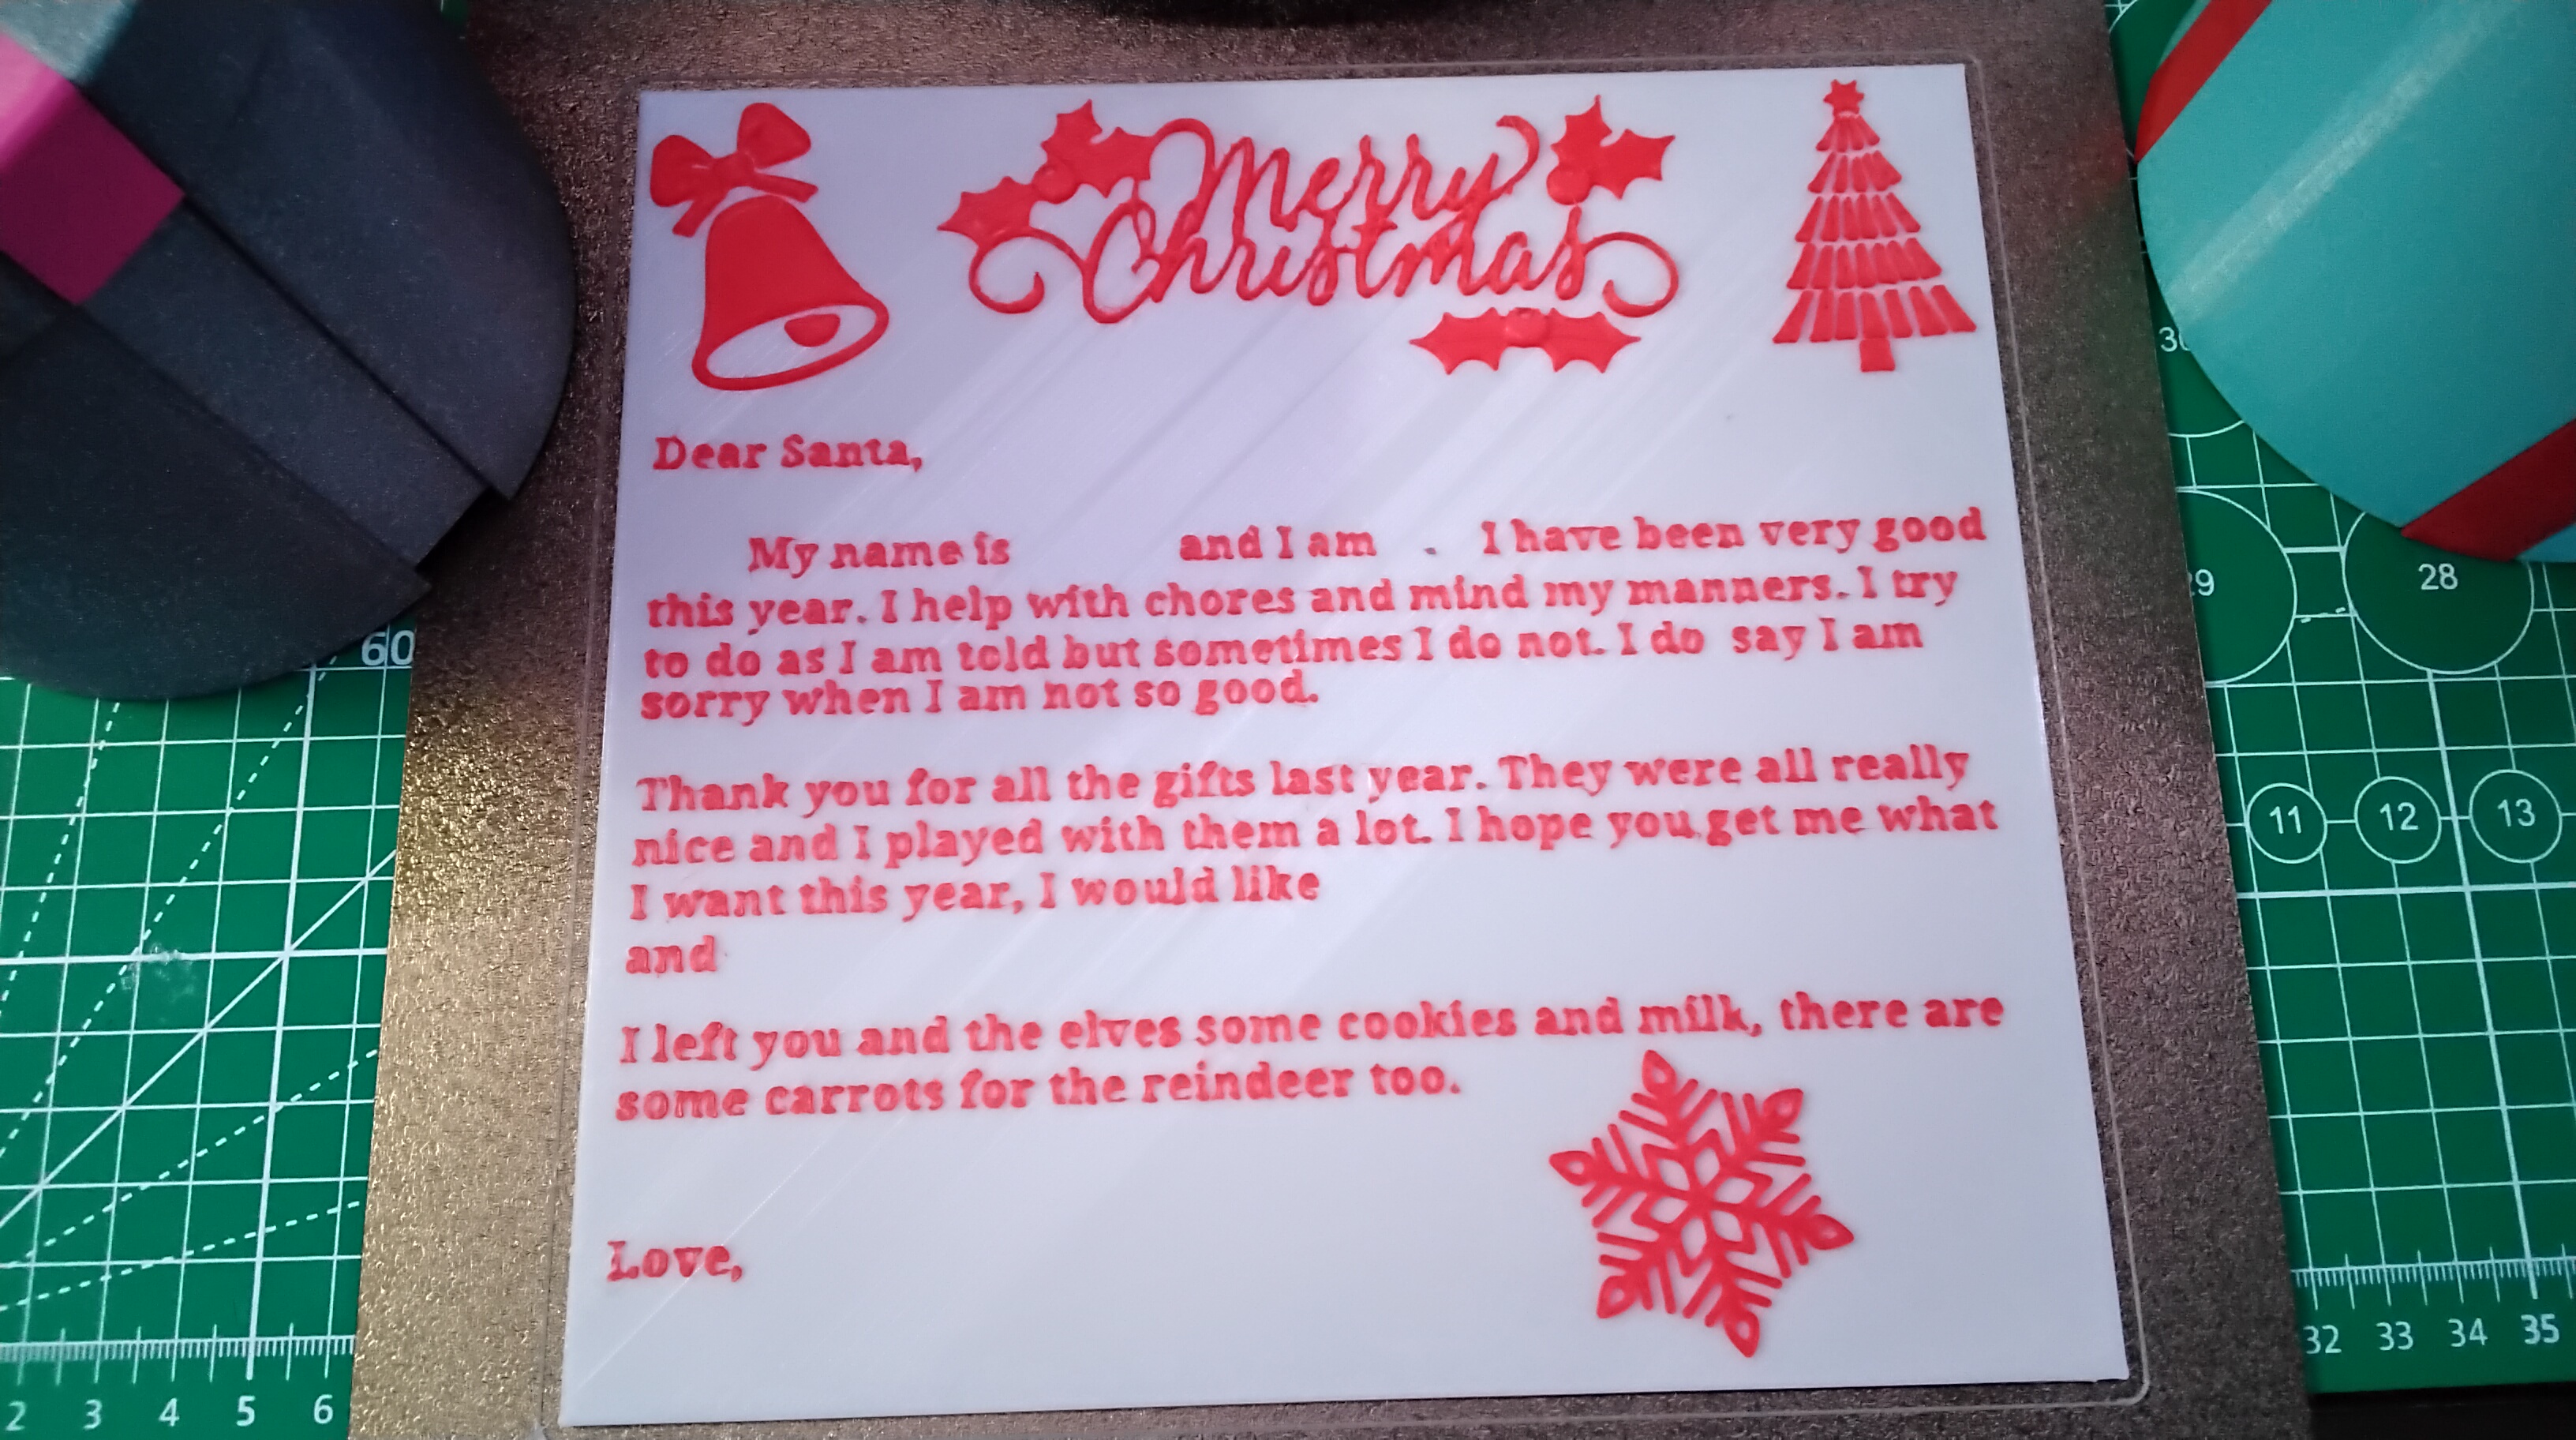 Merry
Christmas
Dear Santa,
My name is and I am . I have been very good
this year. I help with chores and mind my manners. I try
to do as I am told but sometimes I do not. I do say I am
sorry when I am not so good.
Thank you for all the gifts last year. They were all really
nice and I played with them a lot. I hope you get me what
I want this year, I would like
and
I left you and the elves some cookies and milk, there are
some carrots for the reindeer too.
Love,
60
28
11 12 13
2 3 4 5 6
32 33 34 35